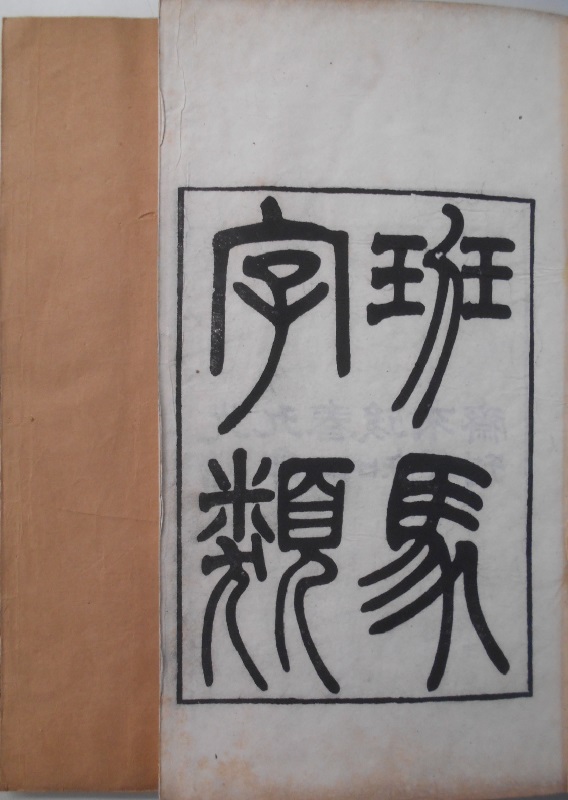 班馬
字類